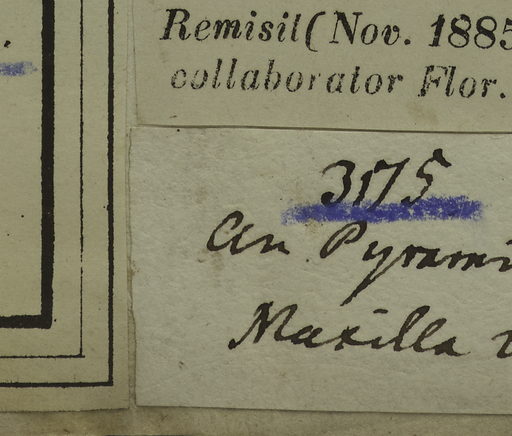 Remisit (Nov. 1885
collaborator Flor.
3175
An Pyrami
Maxilla